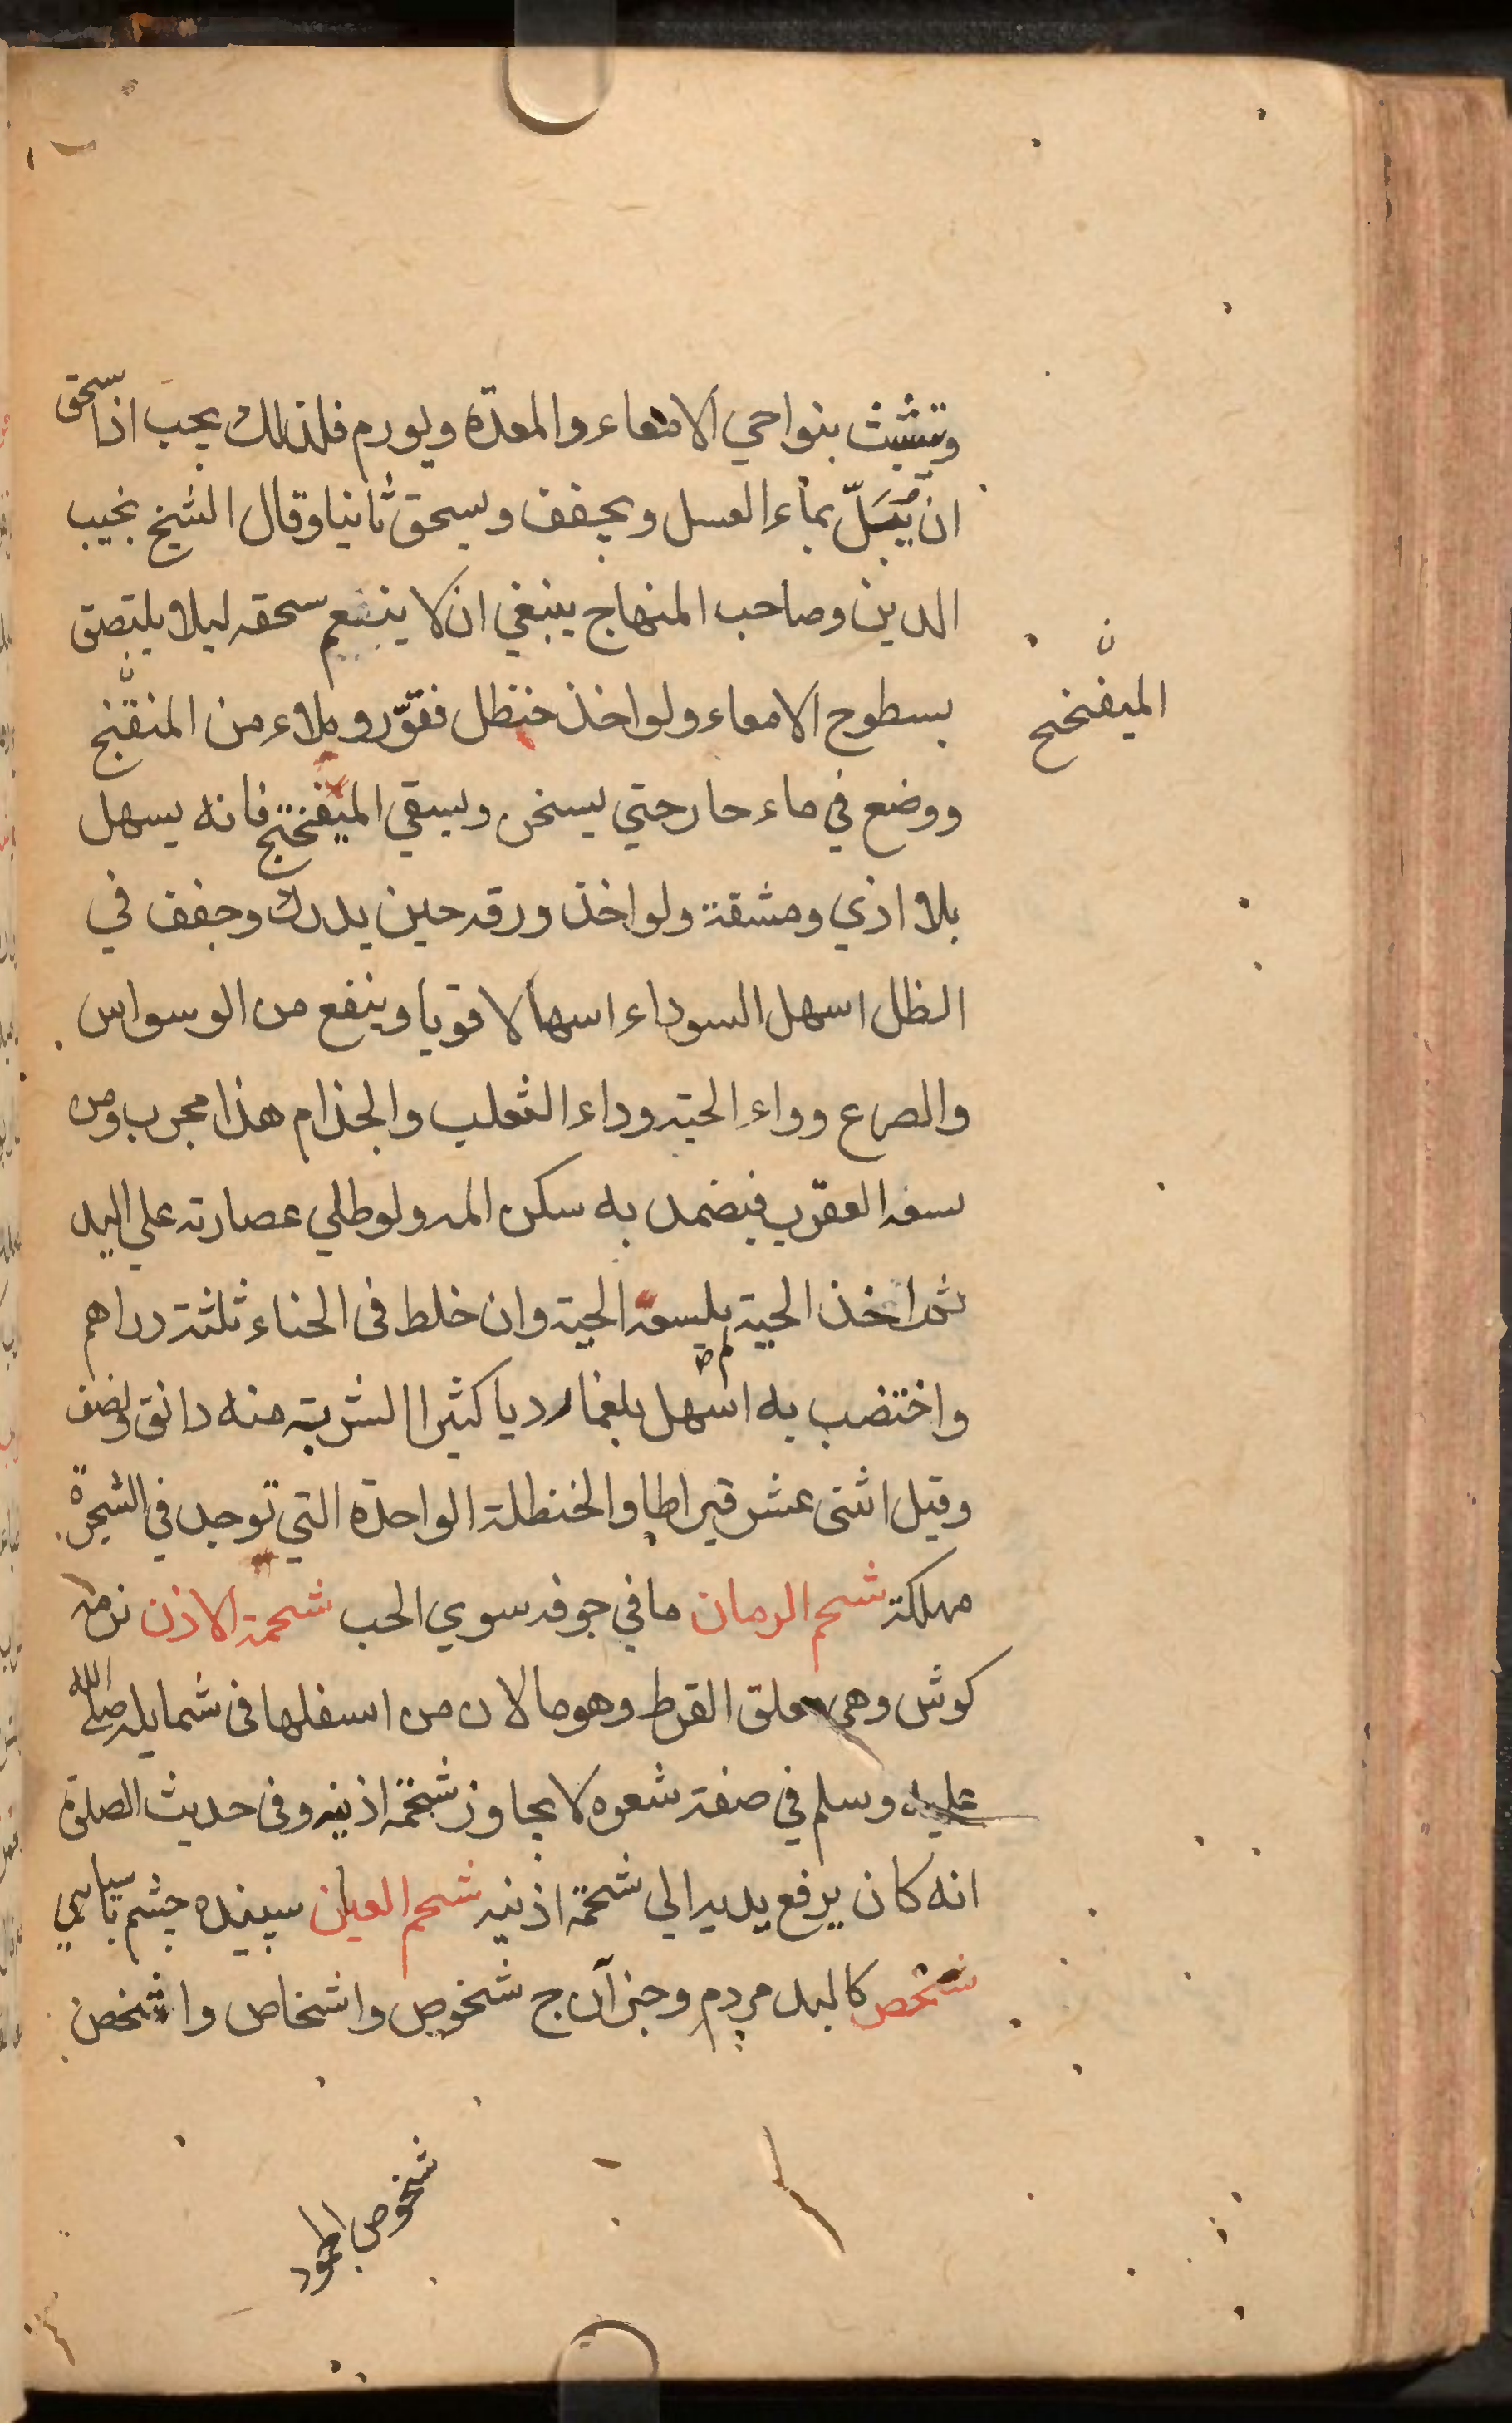 وتتشبث بنواحي الامعاء والمعدة ويورم فلذلك يجب اذا سحق
ان يُبَلّ بماء العسل ويجفف ويسحق ثانيا وقال الشيخ نجيب
الدين وصاحب المنهاج ينبغي ان لا ينعم سحقه ليلا يلتصق
بسطوح الامعاء ولو اخذ حنظل فقوّر وملاء من
الميفنختج
ووضع في ماء حار حتي يسخن ويسقي الميفنختج فانه يسهل
بلا اذي ومشقة ولو اخذ ورقه حين يدرك وجفف في
الظل اسهل السوداء اسهالا قويا وينفع من الوسواس
والصرع وداء الحية وداء الثعلب والجذام هذا مجرب ومن
لسعه العقرب فيضمد به سكن المه ولو طلي عصارته علي اليد
ثم اخذ الحية لم يلسعه الحية وان خلط فى الحناء ثلثة دراهم
واختضب به اسهل بلغما رديا كثيرا الشربة منه دانق ونصف
وقيل اثنى عشر قيراطا والحنظلة الواحدة التي توجد في الشجرة
مهلكة شحم الرمان ما في جوفه سوي الحب شحمة الاذن نرمه
كوش وهي معلق القرط وهو ما لان من اسفلها فى شمايله صلي الله
عليه وسلم في صفة شعره لا يجاوز شحمة اذنيه وفى حديث الصلوة
انه كان يرفع يديه الي شحمة اذنيه شحم العين سپيده چشم با سياهي
شخص كالبد مردم وجز آن ج شخوص واشخاص واشخص
شخوص